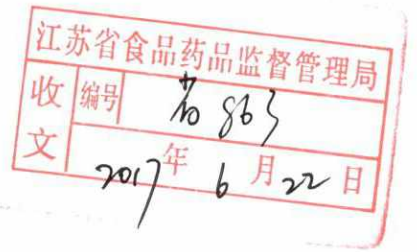 江苏省食品药品监督管理局
收文 编号 省863
2017年6月22日